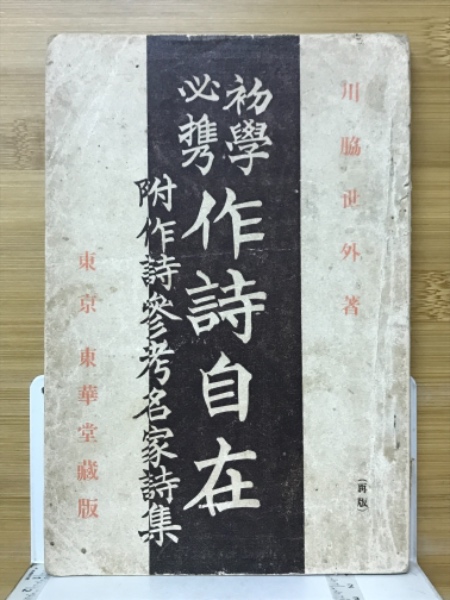 川脇世外著
初學
必携
作詩自在
附作詩參考名家詩集
東京 東華堂藏版
(再版)